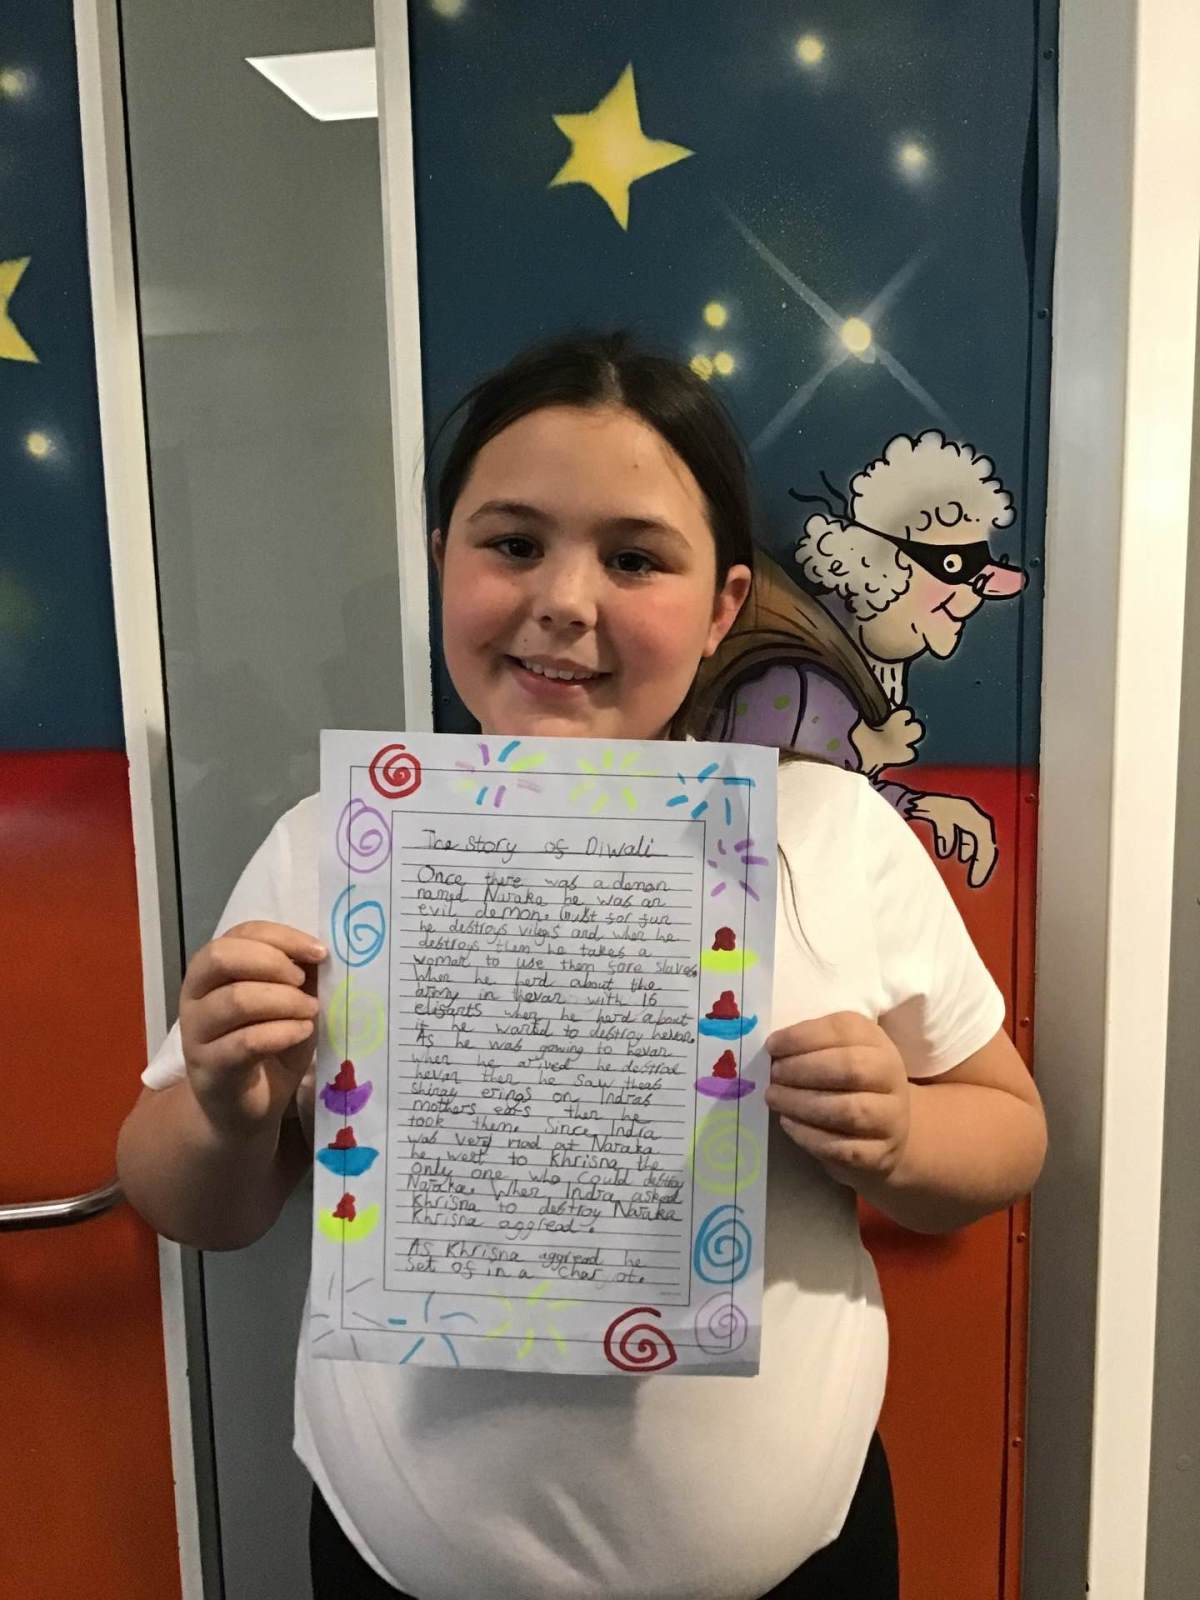 The Story of Diwali
Once there was a demon
named Naraka he was an
evil demon. Just for fun
he destroys vileges and when he
destroys them he takes a
woman to use them fore slaves.
When he herd about the
army in hevan with 16
elifants when he herd about
it he wanted to destroy hevan.
As he was gowing to hevan
when he arived he destroed
hevan then he saw theas
shiney erings on Indras
mothers ears then he
took them. Since Indra
was very mad at Naraka
he went to Khrisna the
only one who could destroy
Naraka. When Indra asked
Khrisna to destroy Naraka
Khrisna aggread.
As Khrisna aggread he
set of in a chariot.